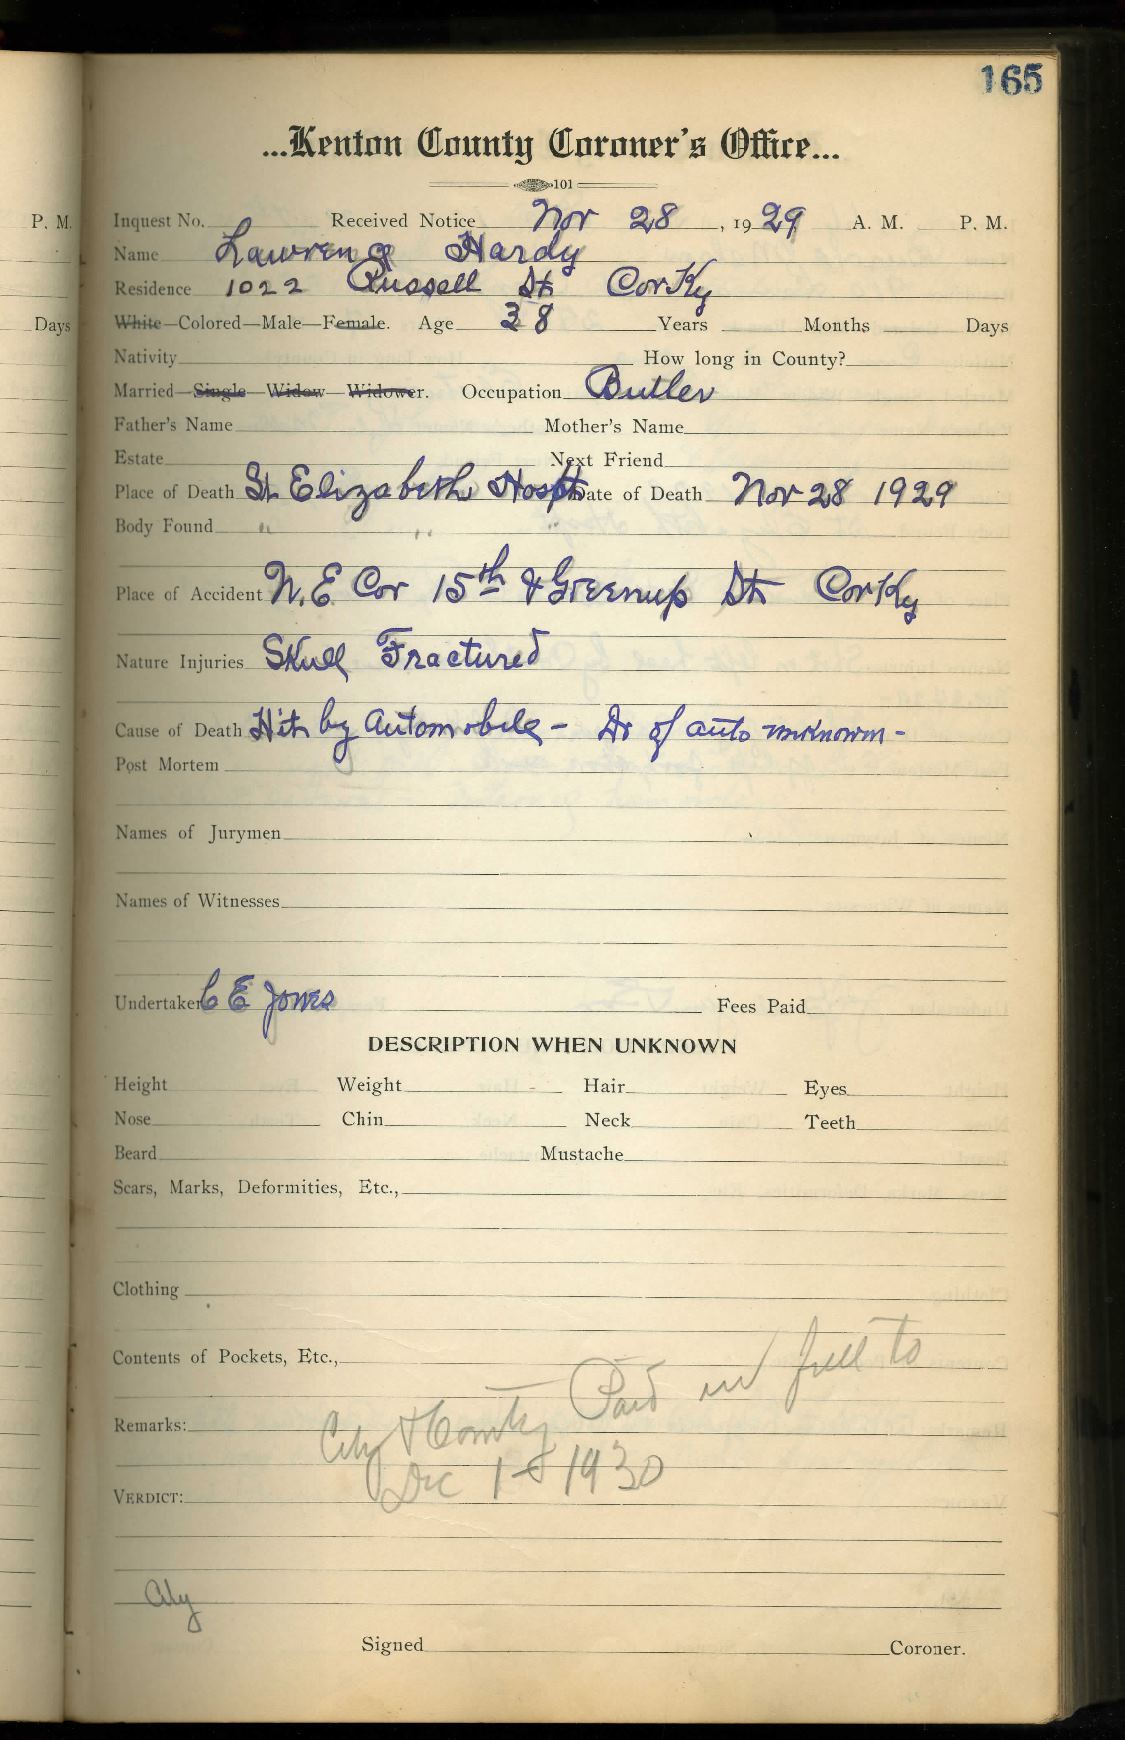 165
...Kenton County Coroner's Office...
101
P. M.
Inquest No. Received Notice Nov 28, 1929 A. M. P. M.
Name Lawrence Hardy
Residence 1022 Russell St Cov Ky
Days
White—Colored—Male—Female. Age 38 Years Months Days
Nativity How long in County?
Married—Single—Widow—Widower. Occupation Butler
Father's Name Mother's Name
Estate Next Friend
Place of Death St Elizabeth Hospt Date of Death Nov 28 1929
Body Found " " "
Place of Accident N.E Cor 15th & Greenup St Cov Ky
Nature Injuries Skull Fractured
Cause of Death Hit by Automobile - Dr of auto unknown -
Post Mortem
Names of Jurymen
Names of Witnesses
Undertaker C E Jones Fees Paid
DESCRIPTION WHEN UNKNOWN
Height Weight Hair Eyes
Nose Chin Neck Teeth
Beard Mustache
Scars, Marks, Deformities, Etc.,
Clothing
Contents of Pockets, Etc.,
Remarks: City & County Paid in full to
Dec 1st 1930
VERDICT:
City
Signed Coroner.